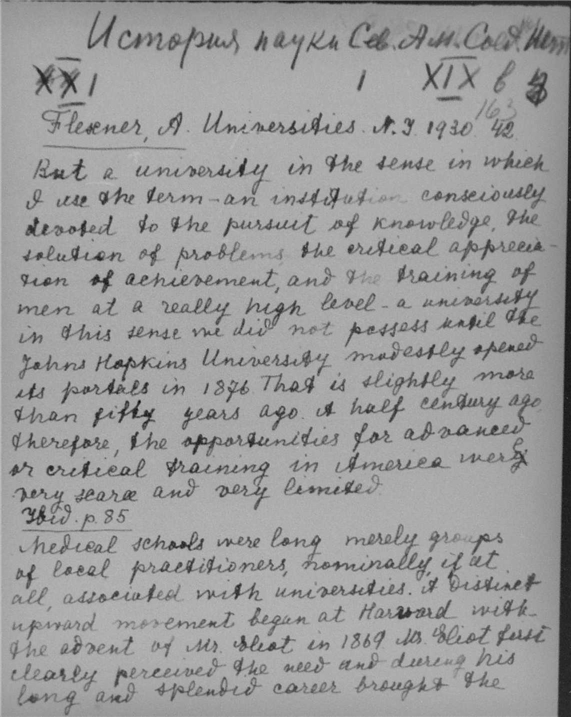 История науки Сев. Ам. Соед. Шт
XXI 1 XIX в
163
Flexner, A. Universities. N.Y. 1930 42
But a university in the sense in which
I use the term – an institution consciously
devoted to the pursuit of knowledge, the
solution of problems, the critical apprecia-
tion of achievement, and the training of
men at a really high level – a university
in this sense we did not possess until the
Johns Hopkins University modestly opened
its portals in 1876. That is slightly more
than fifty years ago. A half century ago,
therefore, the opportunities for advanced
or critical training in America were
very scarce and very limited.
Ibid. p. 85
Medical schools were long merely groups
of local practitioners, nominally, if at
all, associated with universities. A distinct
upward movement began at Harward with
the advent of Mr. Eliot in 1869. Mr. Eliot first
clearly perceived the need and during his
long and splendid career brought the